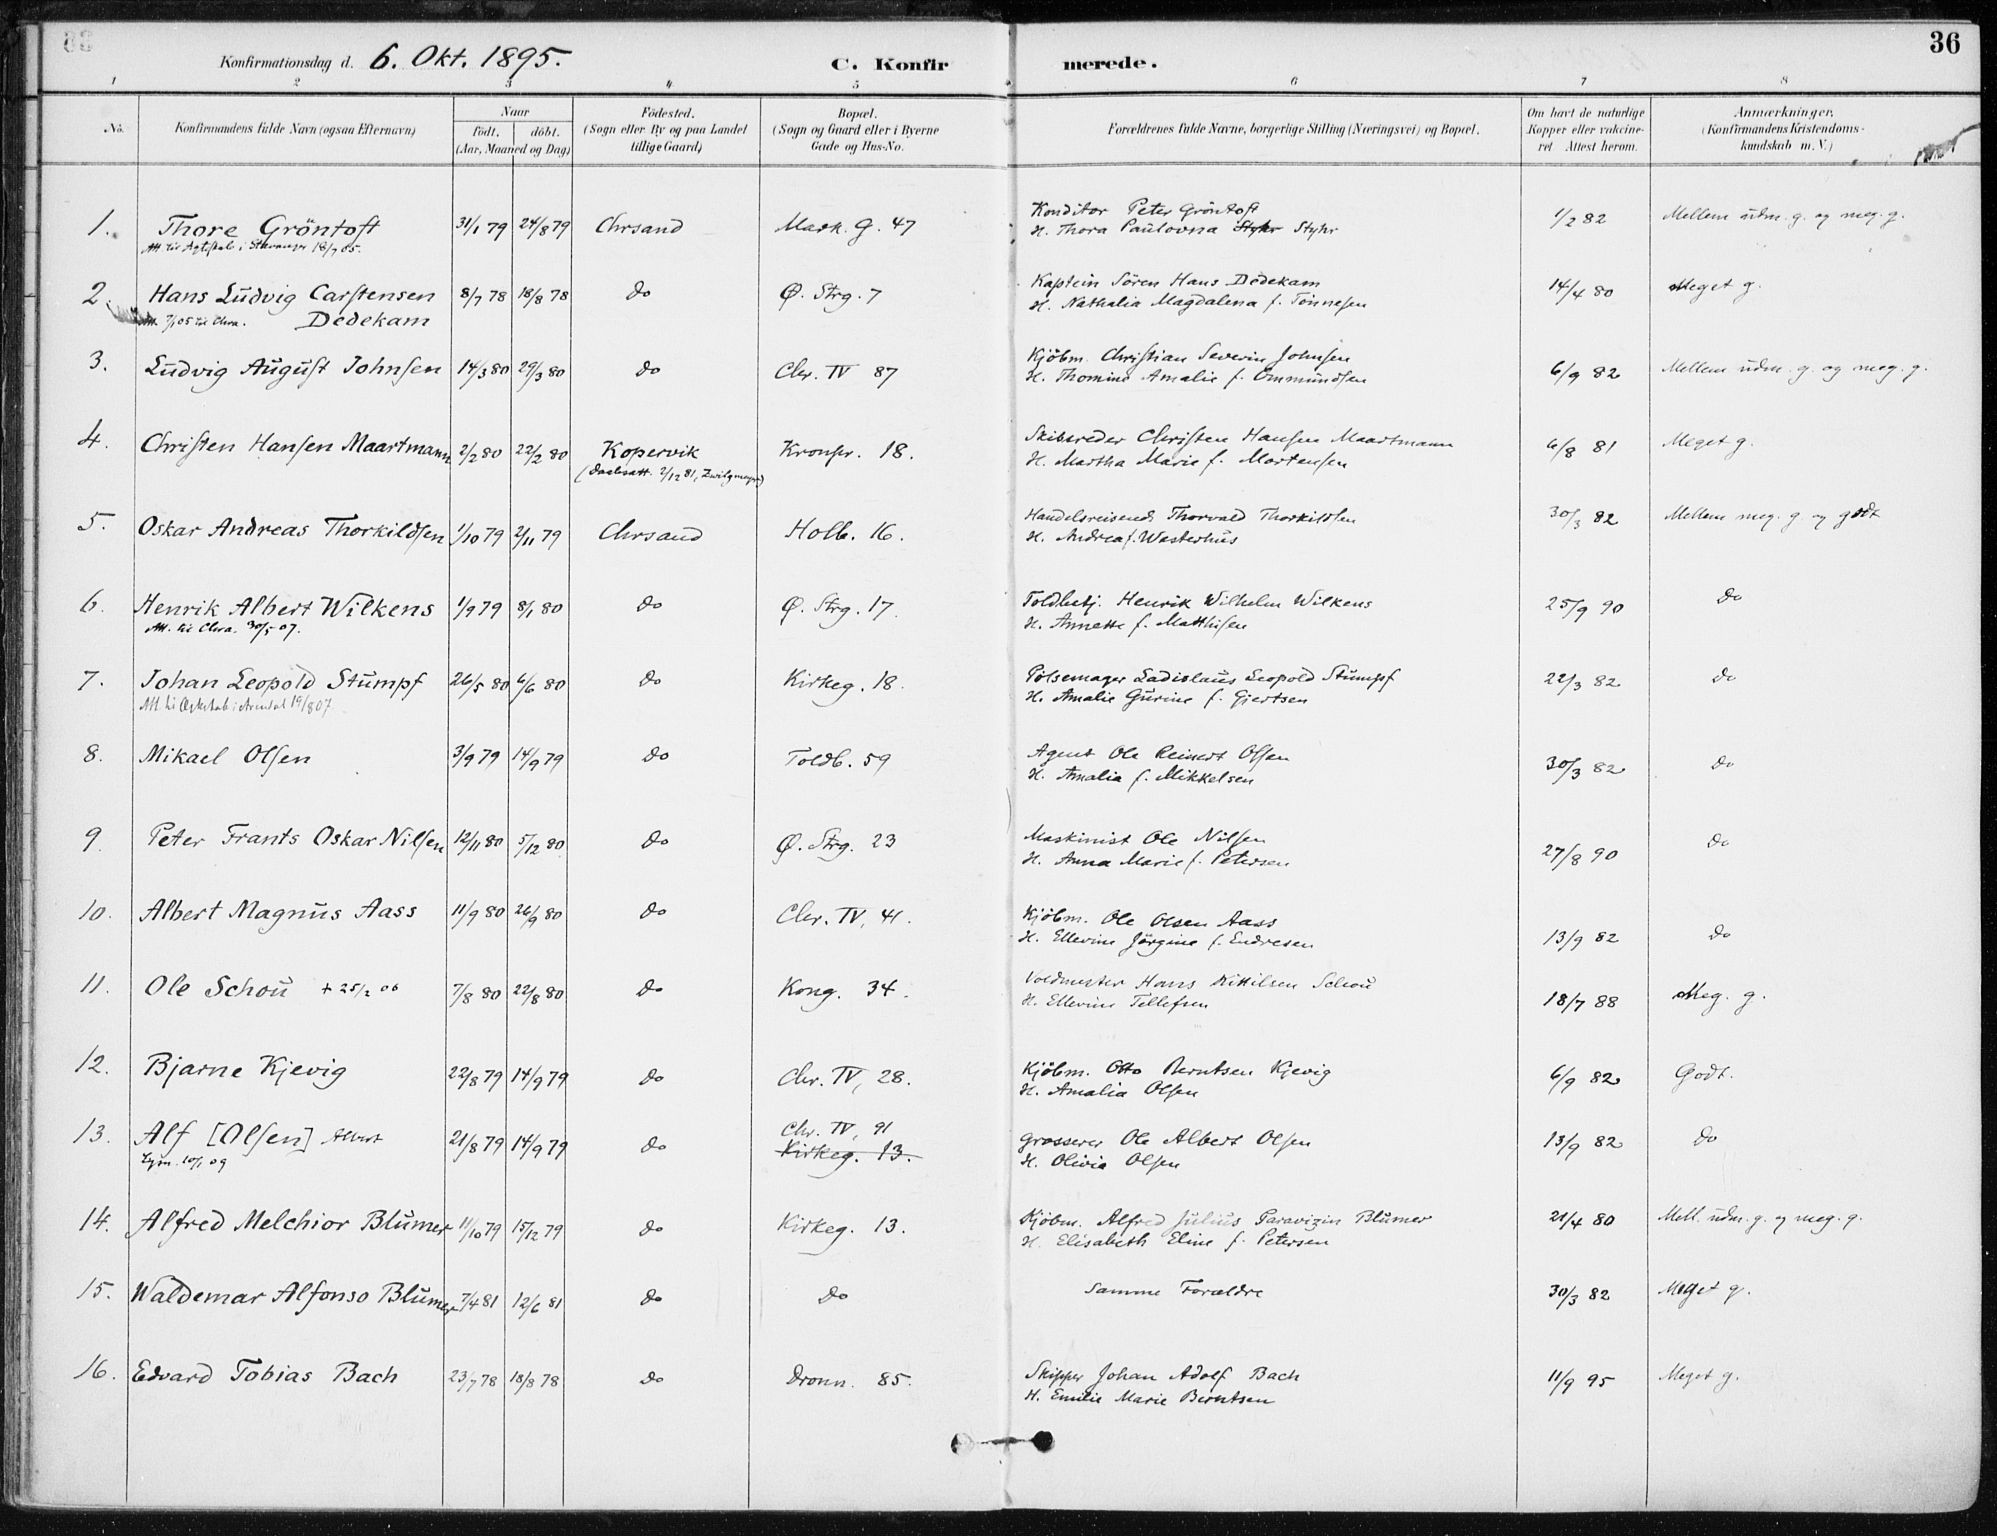 36
Konfirmationsdag d. 6. Okt. 1895. C. Konfirmerede.
1 2 3 4 5 6 7 8
No. Konfirmandens fulde Navn (ogsaa Efternavn) Naar födt. döbt. (Aar, Maaned og Dag) Födested. (Sogn eller By og paa Landet tillige Gaard) Bopæl. (Sogn og Gaard eller i Byerne Gade og Hus-No. Forældrenes fulde Navne, borgerlige Stilling (Næringsvei) og Bopæl. Om havt de naturlige Kopper eller vakcineret Attest herom. Anmærkninger. (Konfirmandens Kristendomskundskab m.V.)
1. Thore Gröntoft 31/1 79 24/8 79 Chrsand Mark. G. 47 Konditor Peter Gröntoft 1/2 82 Mellem udm. g. og meg. g.
Att. til Ægtskab i Stavanger 18/7 05. H. Thora Paulovna Styhr Styhr
2. Hans Ludvig Carstensen 8/7 78 18/8 78 do Ø. Strg. 7 Kaptein Sören Hans Dedekam 14/4 80 Meget g.
Att. 7/1 05 til Chra. Dedekam H. Nathalia Magdalena f. Tönnesen
3. Ludvig August Johnsen 14/3 80 29/3 80 do Chr. IV 87 Kjöbm. Christian Severin Johnsen 6/9 82 Mellem udm. g. og meg. g.
H. Thomine Amalie f. Ommundsen
4. Christen Hansen Maartmann 2/2 80 22/2 80 Kopervik Kronpr. 18. Skibsreder Christen Hansen Maartmann 6/8 81 Meget g.
(Daabsatt. 2/12 81, Zwilgmeyer) H. Martha Marie f. Mortensen
5. Oskar Andreas Thorkildsen 1/10 79 2/11 79 Chrsand Holb. 16. Handelsreisende Thorvald Thorkildsen 30/3 82 Mellem meg. g. og godt
H. Andrea f. Westerhus
6. Henrik Albert Wilkens 1/9 79 8/1 80 do Ø. Strg. 17. Toldbetj. Henrik Wilhelm Wilkens 25/9 90 do
Att. til Chra. 30/5 07. H. Annette f. Matthisen
7. Johan Leopold Stumpf 26/5 80 6/6 80 do Kirkeg. 18. Pölsemager Ladislaus Leopold Stumpf 22/3 82 do
Att til Ægteskab i Arendal 19/8 07 H. Amalie Gurine f. Gjertsen
8. Mikael Olsen 3/9 79 14/9 79 do Toldb. 59 Agent Ole Reinert Olsen 30/3 82 do
H. Amalia f. Mikkelsen
9. Peter Frants Oskar Nilsen 12/11 80 5/12 80 do Ø. Strg. 23 Maskinist Ole Nilsen 27/8 90 do
H. Anna Marie f. Petersen
10. Albert Magnus Aass 11/9 80 26/9 80 do Chr. IV, 41. Kjöbm. Ole Olsen Aass 13/9 82 do
H. Ellevine Jörgine f. Endresen
11. Ole Schou + 25/2 06 7/8 80 22/8 80 do Kong. 34. Voldmester Hans Kittilsen Schou 18/7 88 Meg. g.
H. Ellevine Tellefsen
12. Bjarne Kjevig 22/8 79 14/9 79 do Chr. IV, 28. Kjöbm. Otto Berntsen Kjevig 6/9 82 Godt.
H. Amalia Olsen
13. Alf [Olsen] Albert 21/8 79 14/9 79 do Chr. IV, 91 Kirkeg. 13. grosserer Ole Albert Olsen 13/9 82 do
10/1 09 H. Olivia Olsen
14. Alfred Melchior Blumer 11/10 79 15/12 79 do Kirkeg. 13. Kjöbm. Alfred Julius Paravizin Blumer 21/4 80 Mell. udm. g. og meg. g.
H. Elisabeth Eline f. Petersen
15. Waldemar Alfonso Blumer 7/4 81 12/6 81 do do Samme Forældre 30/3 82 Meget g.
16. Edvard Tobias Bach 23/7 78 18/8 78 do Dronn. 85. Skipper Johan Adolf Bach 11/9 95 Meget g.
H. Emilie Marie Berntsen